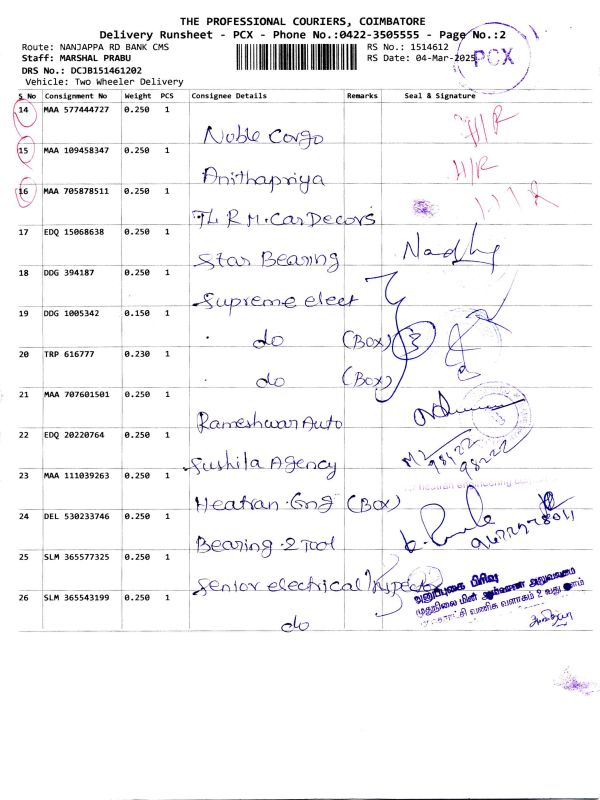 THE PROFESSIONAL COURIERS, COIMBATORE
Delivery Runsheet - PCX - Phone No.:0422-3505555 - Page No.:2
Route: NANJAPPA RD BANK CMS
RS No.: 1514612
Staff: MARSHAL PRABU
RS Date: 04-Mar-2025
PCX
DRS No.: DCJB151461202
Vehicle: Two Wheeler Delivery
S No Consignment No Weight PCS Consignee Details Remarks Seal & Signature
14 MAA 577444727 0.250 1
Noble Cargo
15 MAA 109458347 0.250 1
Anithapriya
16 MAA 705878511 0.250 1
R M. Car Decors
17 EDQ 15068638 0.250 1
Star Bearing
18 DDG 394187 0.250 1
Supreme elect
19 DDG 1005342 0.150 1
do (Box) 3
20 TRP 616777 0.230 1
do (Box)
21 MAA 707601501 0.250 1
Rameshwar Auto
22 EDQ 20220764 0.250 1
Sushila Agency
98422
98222
23 MAA 111039263 0.250 1
Heatran Eng (Box)
24 DEL 530233746 0.250 1
Bearing 2 Tool
25 SLM 365577325 0.250 1
Senior electrical Inspect
அனுப்புகை பிரிவு
26 SLM 365543199 0.250 1
do